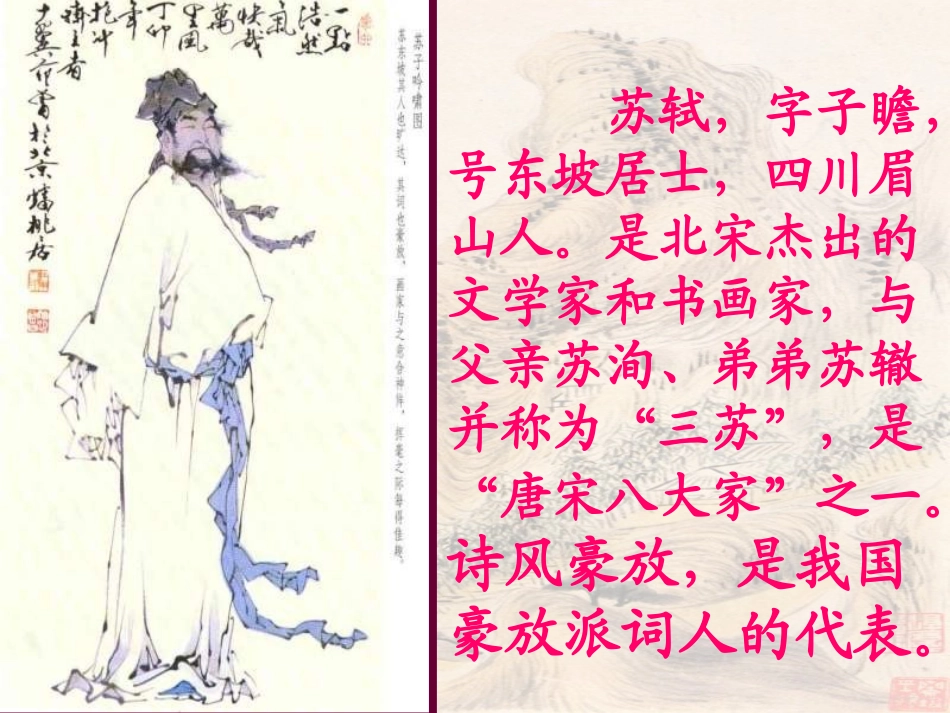 一點
浩然
氣
快哉
萬
里風
丁卯
年
抱冲
齋主者
十翼范曾於北京
苏子吟啸图
苏东坡其人也旷达，其词也豪放，画家与之意合神侔，挥毫之际每得佳趣。
苏轼，字子瞻，
号东坡居士，四川眉
山人。是北宋杰出的
文学家和书画家，与
父亲苏洵、弟弟苏辙
并称为“三苏”，是
“唐宋八大家”之一。
诗风豪放，是我国
豪放派词人的代表。